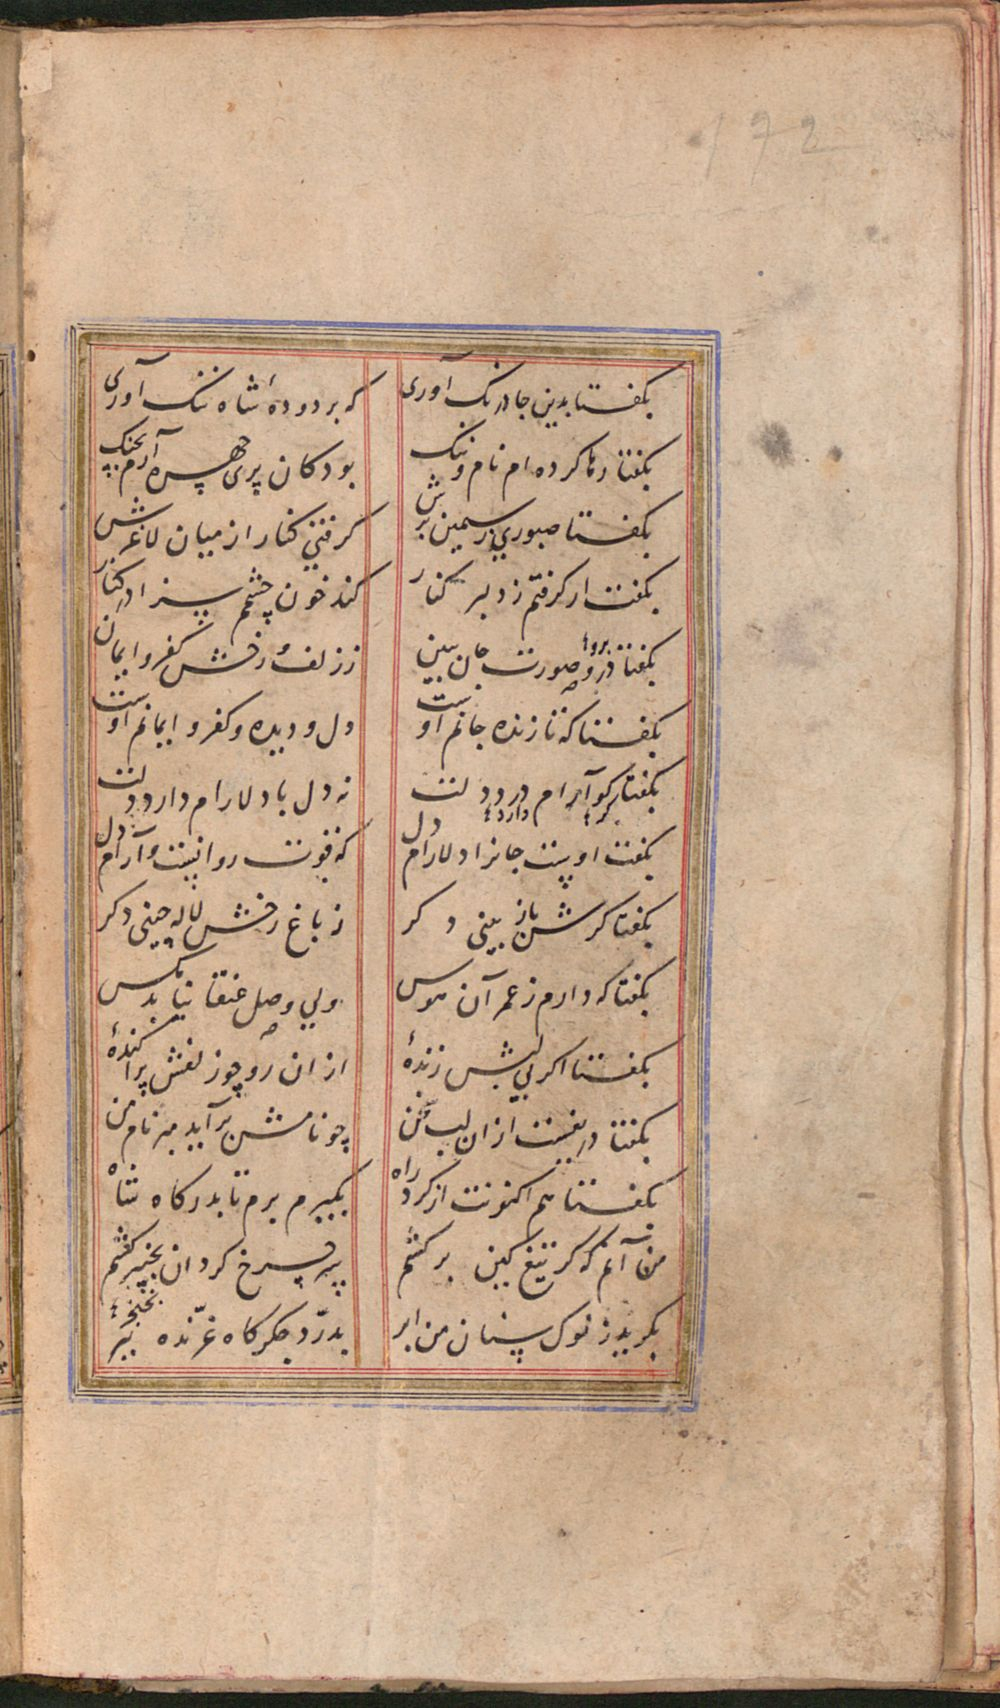 بکفتا بدین جا درنک آوری که بر دودهٔ شاه ننک آوری
بکفتا رها کرده ام نام و ننک بود کان پری چهره آرم بچنک
بکفتا صبوری ز سیمین برش کرفتی کنار از میان لاغرش
بکفت ار کرفتم ز دلبر کنار کند خون چشمم سزا در کنار
بکفتا در و صورت جان ببین ز زلف و رخش کفر و ایمان
بکفتا که تا زنده جانم اوست دل و دیده و کفر و ایمانم اوست
بکفتا کو آرام در دلت نه دل با دلارام دارد دلت
بکفت اوست جانرا دلارام دل که قوت روانست و آرام دل
بکفتا کرش باز بینی دکر ز باغ رخش لاله چینی دکر
بکفتا که دارم ز عمر آن هوس ولی وصل عنقا نیابد مکس
بکفتا اکر بی لبش زندهٔ از ان رو چو زلفش پراکندهٔ
بکفتا دریغست ازان لب سخن چو نامش برآید مبر نام من
بکفتا هم اکنونت از کرد راه بکیرم برم تا بدرکاه شاه
من آنم که کر تیغ کین برکشم سر چرخ کردان بچنبر کشم
بکرید ز نوک سنان من ابر بدرّد جکرکاه غرّنده ببر